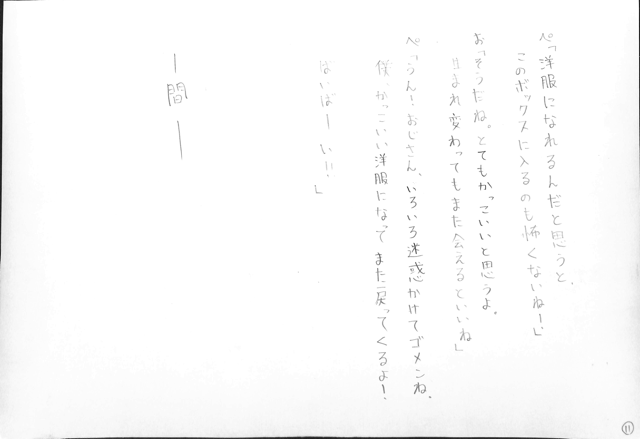 ペ「洋服になれるんだと思うと、
このボックスに入るのも怖くないねー!」
お「そうだね。とてもかっこいいと思うよ。
生まれ変わってもまた会えるといいね」
ペ「うん!おじさん、いろいろ迷惑かけてゴメンね、
僕、かっこいい洋服になってまた戻ってくるよ!
ばいばーい!!」
ー間ー
11